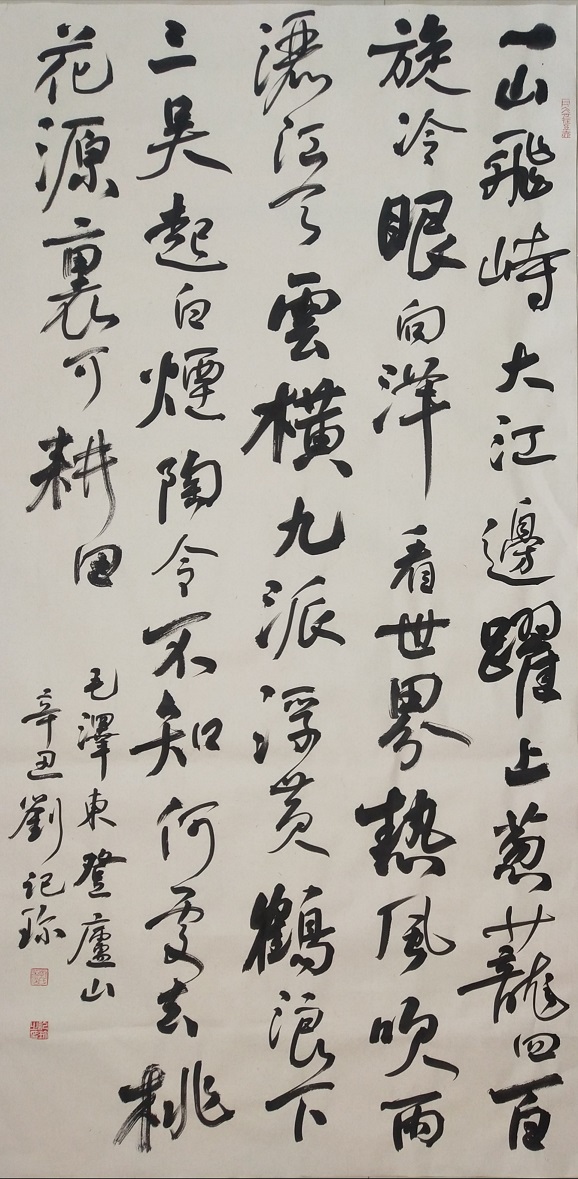 一山飛峙大江邊躍上葱蘢四百
旋冷眼向洋看世界熱風吹雨
灑江天雲橫九派浮黄鶴浪下
三吳起白煙陶令不知何處去桃
花源裏可耕田
毛澤東登廬山
辛丑劉記珎